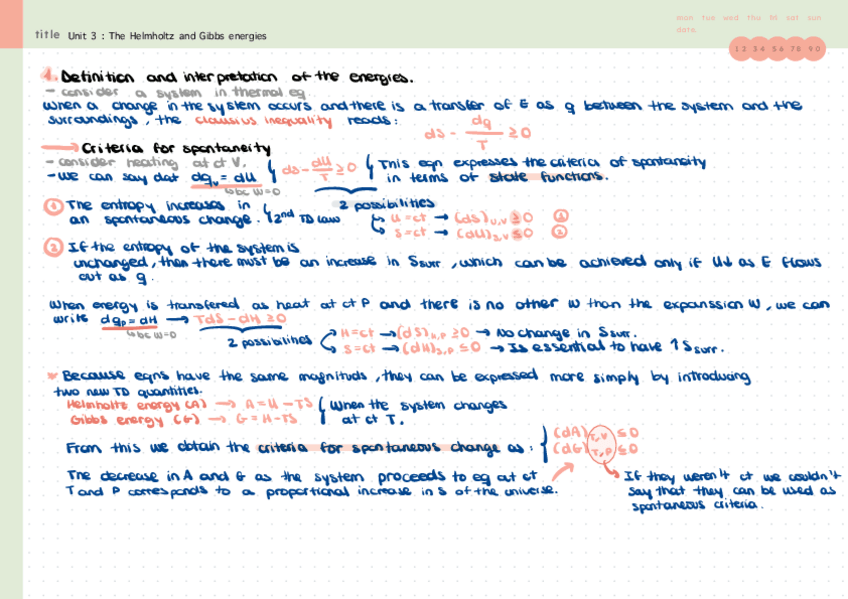 mon tue wed thu fri sat sun
date
title Unit 3 : The Helmholtz and Gibbs energies
1 2 3 4 5 6 7 8 9 0
1. Definition and interpretation of the energies.
- consider a system in thermal eq.
When a change in the system occurs and there is a transfer of E as q between the system and the
surroundings, the clausius inequality reads: dS - dq/T ≥ 0
→ Criteria for spontaneity
- consider heating at ct V.
- We can say dat dqv = dU
↳ bc W=0
dS - dU/T ≥ 0
This eqn expresses the criteria of spontaneity
in terms of state functions.
2 possibilities
↳ U=ct → (dS)U,V ≥ 0 ①
↳ S=ct → (dU)S,V ≤ 0 ②
① The entropy increases in
an spontaneous change. 2nd TD law
② If the entropy of the system is
unchanged, then there must be an increase in Ssurr, which can be achieved only if U↓ as E flows
out as q.
When energy is transfered as heat at ct P and there is no other W than the expanssion W, we can
write dqp = dH → TdS - dH ≥ 0
↳ bc W=0
2 possibilities
H=ct → (dS)H,P ≥ 0 → No change in Ssurr.
S=ct → (dH)S,P ≤ 0 → Is essential to have ↑Ssurr.
Because eqns have the same magnituds, they can be expressed more simply by introducing
two new TD quantities.
Helmholtz energy (A) → A = U - TS
Gibbs energy (G) → G = H - TS
When the system changes
at ct T.
From this we obtain the criteria for spontaneous change as:
(dA)T,V ≤ 0
(dG)T,P ≤ 0
The decrease in A and G as the system proceeds to eq at ct
T and P corresponds to a proportional increase in S of the universe.
If they weren't ct we couldn't
say that they can be used as
spontaneous criteria.